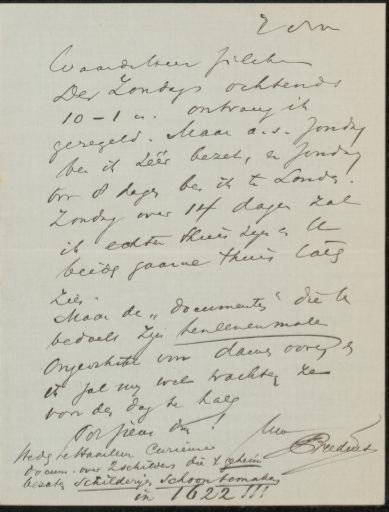 Waarde Heer Zilcken
Des Zondags ochtends
10-1 u. ontvang ik
geregeld. Maar a.s. Zondag
ben ik zéér bezet, en Zondag
over 8 dagen ben ik te Londen.
Zondag over 14 dagen zal
ik echter thuis zijn en U
beide gaarne thuis laten
zien.
Maar de „documenten" die U
bedoelt zijn ten eenenmale
ongeschikt voor dames oogen en
ik zal my wel wachten ze
voor den dag te halen
Tot ziens dus!
Uw
ABredius
Heden te Haarlem curieuse
docum. over 2 schilders die 't geheim
bezaten schilderijen schoon te maken
in 1622!!!